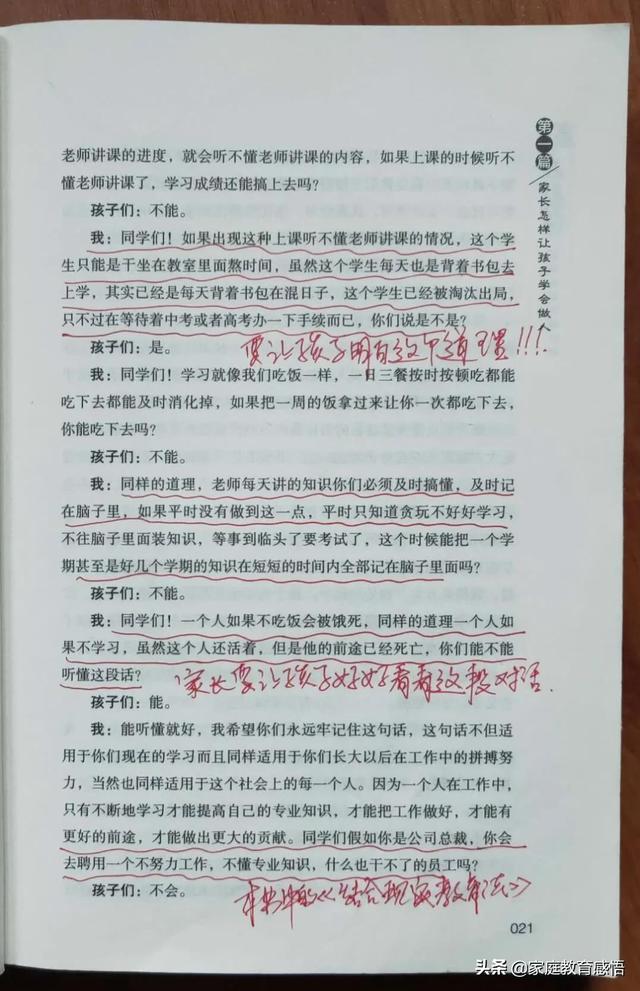 第一篇
家长怎样让孩子学会做人
老师讲课的进度，就会听不懂老师讲课的内容，如果上课的时候听不
懂老师讲课了，学习成绩还能搞上去吗？
孩子们：不能。
我：同学们！如果出现这种上课听不懂老师讲课的情况，这个学
生只能是干坐在教室里面熬时间，虽然这个学生每天也是背着书包去
上学，其实已经是每天背着书包在混日子，这个学生已经被淘汰出局，
只不过在等待着中考或者高考办一下手续而已，你们说是不是？
孩子们：是。
要让孩子明白这个道理！！！
我：同学们！学习就像我们吃饭一样，一日三餐按时按顿吃都能
吃下去都能及时消化掉，如果把一周的饭拿过来让你一次都吃下去，
你能吃下去吗？
孩子们：不能。
我：同样的道理，老师每天讲的知识你们必须及时搞懂，及时记
在脑子里，如果平时没有做到这一点，平时只知道贪玩不好好学习，
不往脑子里面装知识，等事到临头了要考试了，这个时候能把一个学
期甚至是好几个学期的知识在短短的时间内全部记在脑子里面吗？
孩子们：不能。
我：同学们！一个人如果不吃饭会被饿死，同样的道理一个人如
果不学习，虽然这个人还活着，但是他的前途已经死亡，你们能不能
听懂这段话？
家长要让孩子好好看看这段对话.
孩子们：能。
我：能听懂就好，我希望你们永远牢记住这句话，这句话不但适
用于你们现在的学习而且同样适用于你们长大以后在工作中的拼搏努
力，当然也同样适用于这个社会上的每一个人。因为一个人在工作中，
只有不断地学习才能提高自己的专业知识，才能把工作做好，才能有
更好的前途，才能做出更大的贡献。同学们假如你是公司总裁，你会
去聘用一个不努力工作，不懂专业知识，什么也干不了的员工吗？
孩子们：不会。
结合现实教育法
021
头条 @家庭教育感悟